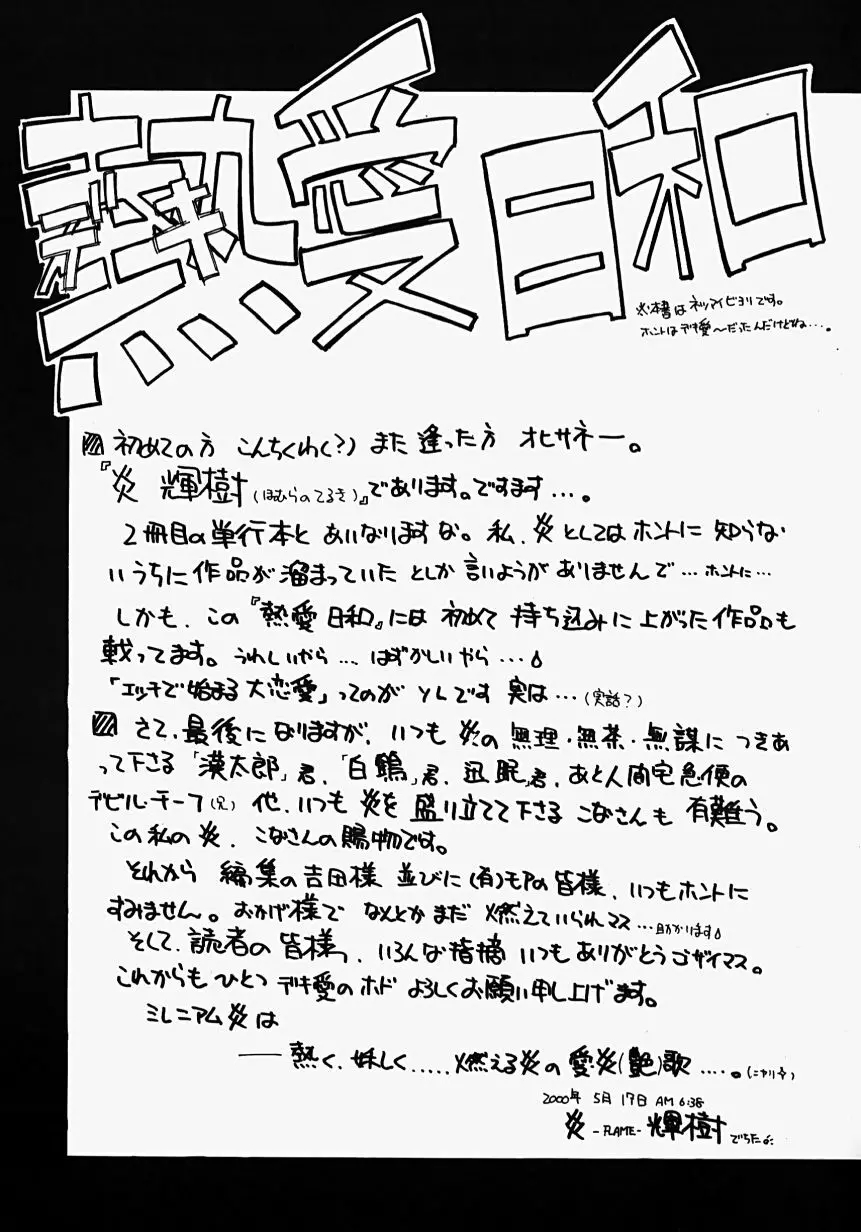 熱愛日和
デキ
※本書はネツアイビヨリです。
ホントはデキ愛〜だったんだけどね…。
初めての方 こんちくわ(?) また逢った方 オヒサネー。
『炎 輝樹(ほむらのてるき)』であります。ですます…。
2冊目の単行本と あいなりますな。私、炎としてはホントに知らな
いうちに作品が溜まっていたとしか言いようがありませんで…ホントに…
しかも、この『熱愛日和』には初めて持ち込みに上がった作品も
載ってます。うれしいやら…はずかしいやら…
「エッチで始まる大恋愛」ってのがソレです 実は…(実話?)
さて、最後になりますが、いつも炎の無理・無茶・無謀につきあ
って下さる「漢太郎」君、「白鶴」君、迅眠君、あと人間宅急便の
デビル・チーフ(兄)他、いつも炎を盛り立てて下さるこなさんも有難う。
この私の炎、こなさんの賜物です。
それから編集の吉田様並びに(有)モアの皆様、いつもホントに
すみません。おかげ様でなんとかまだ燃えていられマス…助かります
そして、読者の皆様っ、いろんな指摘いつもありがとうゴザイマス。
これからもひとつデキ愛のホドよろしくお願い申し上げます。
ミレニアム炎は
――熱く、妖しく.....燃える炎の愛炎(艶)歌.....。(ニヤリ)
2000年 5月 17日 AM 6:38
炎 -FLAME- 輝樹 でちたよ